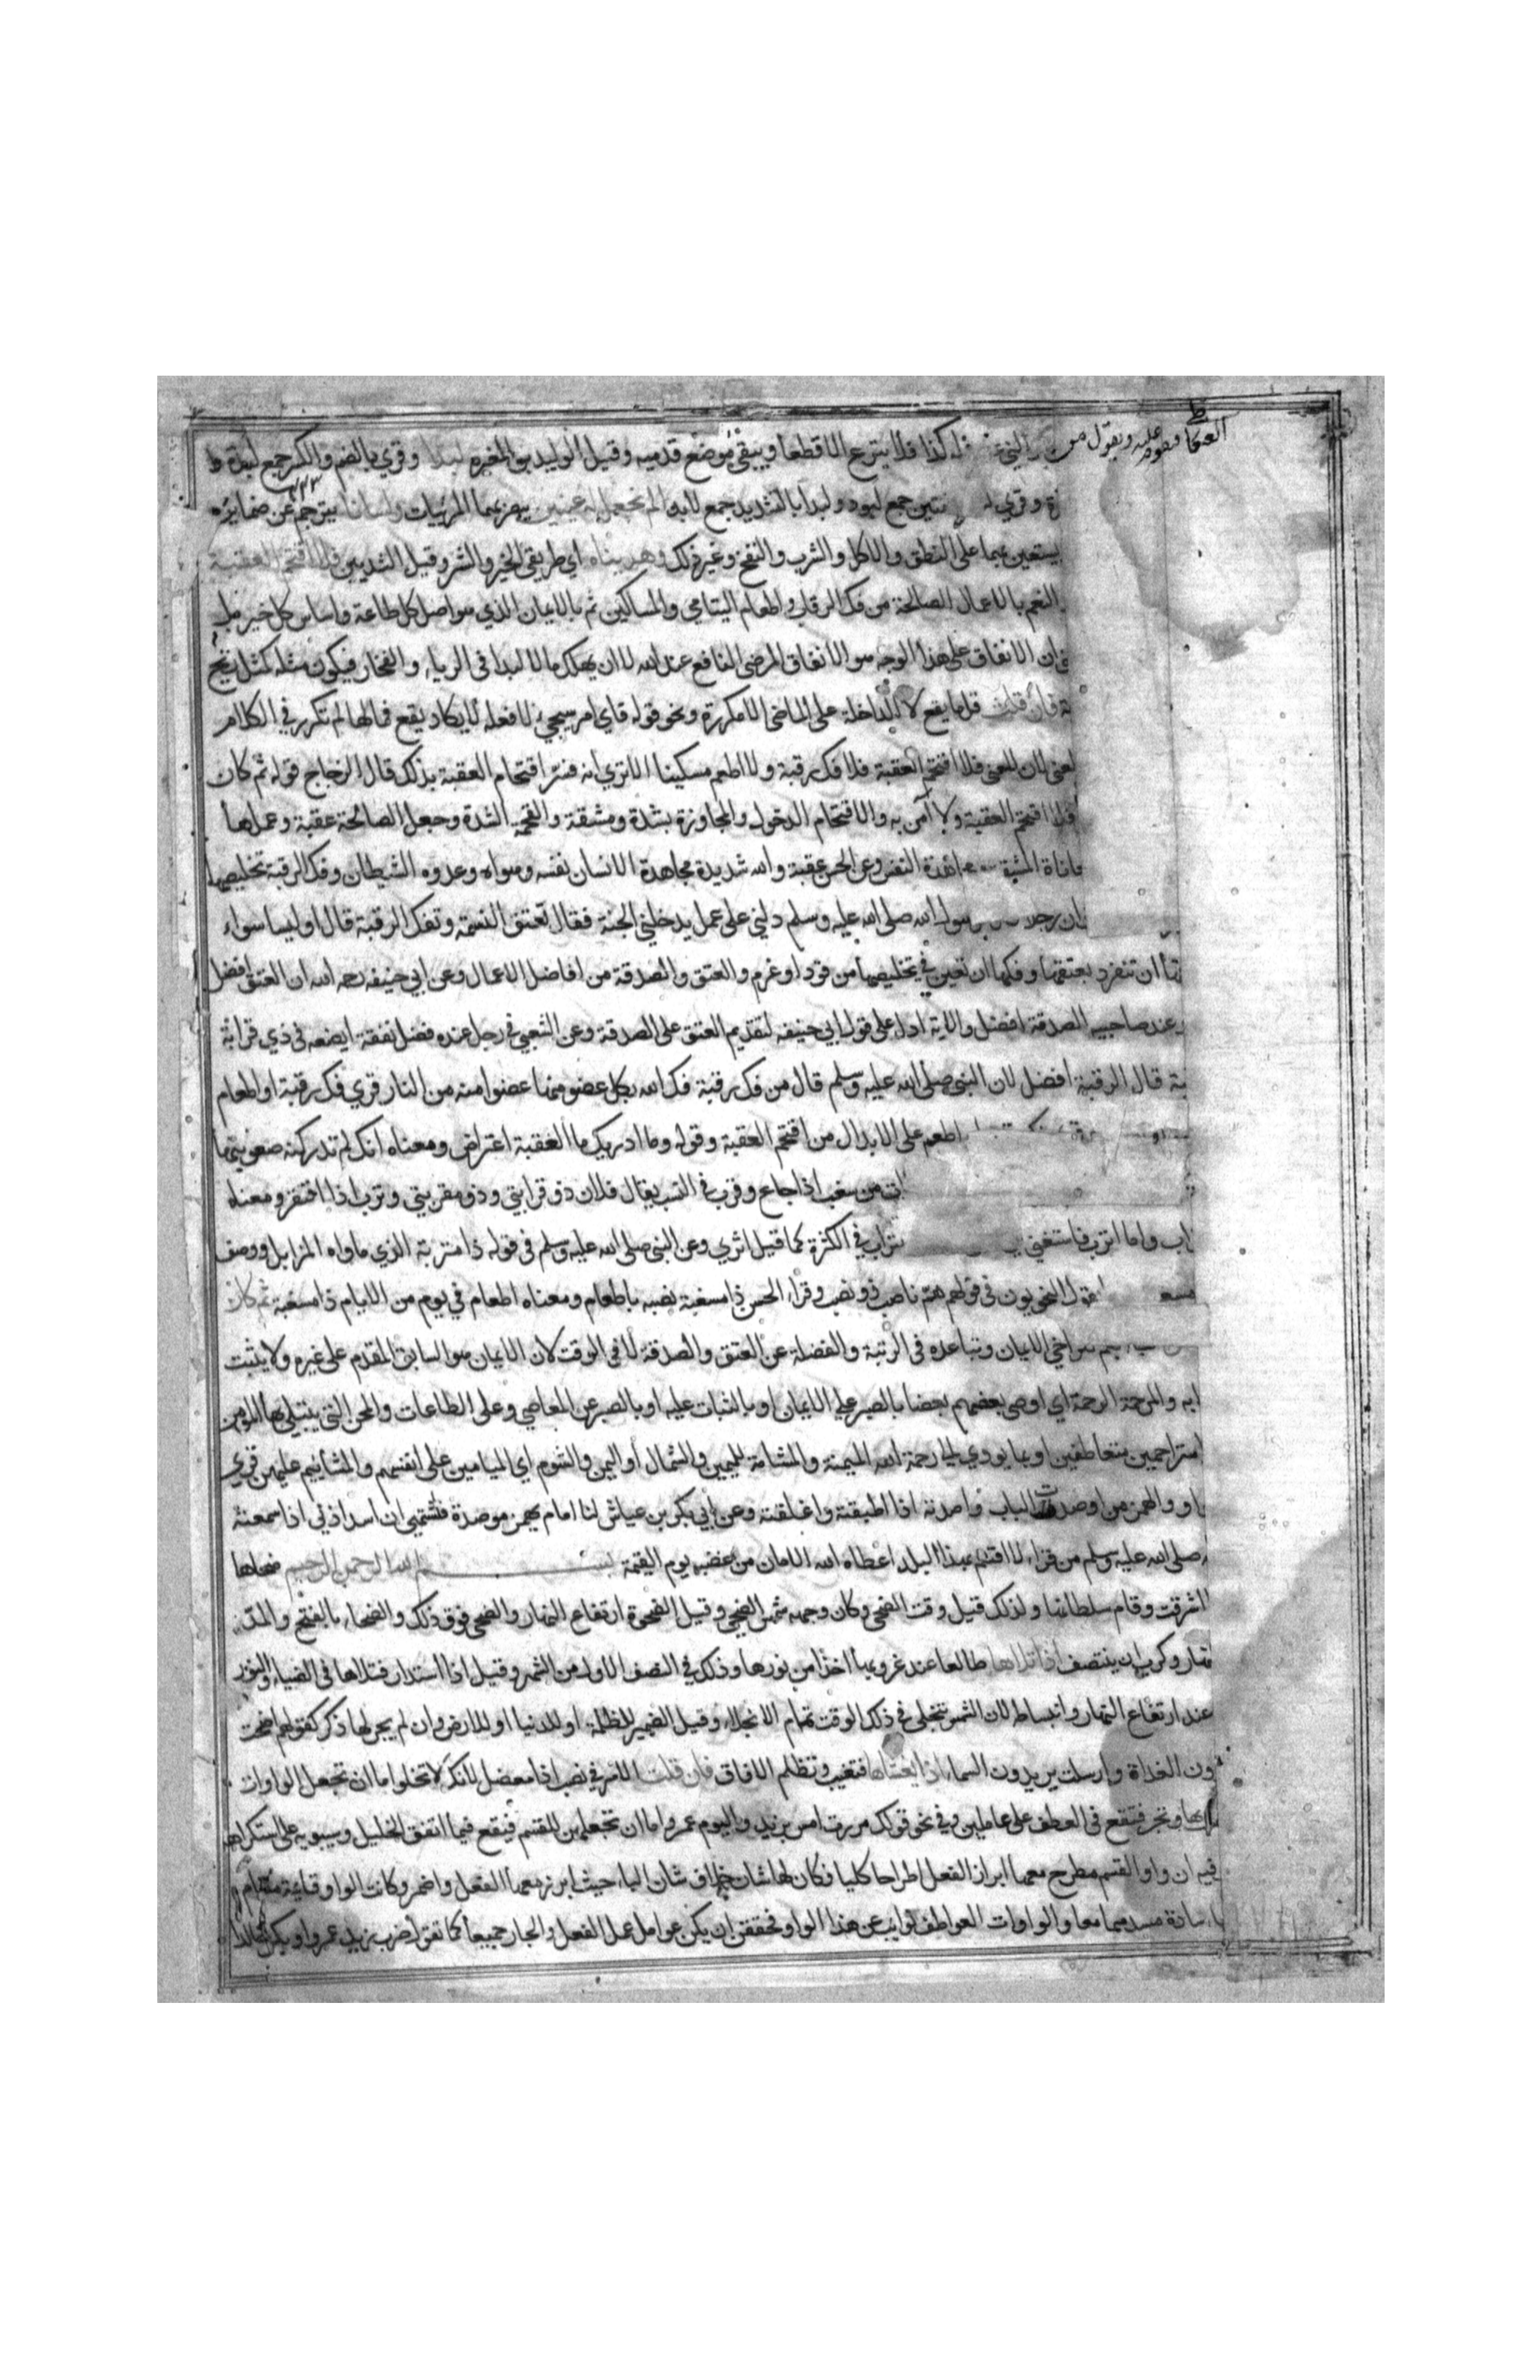 العكاظ فيقوم عليه ويقول من
فله كذا فلا ينزع الا قطعا ويبقى موضع قدميه وقيل الوليد بن المغيره لبدا وقرئ بالضم والكسر جمع لبدة
وقري جمع لبود ولبدا بالتشديد جمع لابد الم نجعل له عينين يبصر بهما المرئيات ولسانا يترجم عن ضمايره
يستعين بهما على النطق والاكل والشرب والنفخ وغير ذلك وهديناه اي طريقي الخير والشر وقيل الثديين فلا اقتحم العقبة
النعم بالاعمال الصالحة من فك الرقاب واطعام اليتامى والمساكين ثم بالايمان الذي هو اصل كل طاعة واساس كل خير بل
ان الانفاق على هذا الوجه هو الانفاق المرضى النافع عند الله لا ان يهلك مالا لبدا في الرياء والفخار فيكون مثله كمثل ريح
فان قلت قل ما يقع لا الداخلة على الماضى الا مكررة ونحو قوله فاي امر سيجيء لا فعله لا يكاد يقع فما لها لم تكرر في الكلام
لان المعنى فلا اقتحم العقبة فلا فك رقبة ولا اطعم مسكينا الا ترى انه فسر اقتحام العقبة بذلك قال الزجاج قوله ثم كان
فلا اقتحم العقبة ولا آمن به والاقتحام الدخول والمجاوزة بشدة ومشقة والقحمة الشدة وجعل الصالحة عقبة وعملها
النفس وعن الحسن عقبة والله شديدة مجاهدة الانسان نفسه وهواه وعدوه الشيطان وفك الرقبة تخليصها
ان رجلا الله صلى الله عليه وسلم دلني على عمل يدخلني الجنة فقال تعتق النسمة وتفك الرقبة قال اوليسا سواء
ان تنفرد بعتقها وفكها ان تعين في تخليصها من قود او غرم والعتق والصدقة من افاضل الاعمال وعن ابي حنيفه رحمه الله ان العتق افضل
عند صاحبيه الصدقة افضل والاية ادل على قول ابي حنيفه لتقديم العتق على الصدقة وعن الشعبي في رجل عنده فضل نفقة ايضعه في ذي قرابة
قال الرقبة افضل لان النبي صلى الله عليه وسلم قال من فك رقبة فك الله بكل عضو منها عضوا منه من النار قرئ فك رقبة او اطعام
اطعم على الابدال من اقتحم العقبة وقوله وما ادريك ما العقبة اعتراض ومعناه انك لم تدر كنه صعوبتها
من سغب اذا جاع وقرب في النسب يقال فلان ذو قرابتي وذو مقربتي وترب اذا افتقر ومعناه
واما اترب فاستغنى في الكثرة كما قيل اثري وعن النبي صلى الله عليه وسلم في قوله ذا متربة الذي ماواه المزابل ووصف
النحويون في قولهم هم ناصب ذو نصب وقرأ الحسن ذا مسغبة نصبه باطعام ومعناه اطعام في يوم من الايام ذا مسغبة ثم كان
الايمان وتباعده في الرتبة والفضلة عن العتق والصدقة لا في الوقت لان الايمان هو السابق المقدم على غيره ولا يثبت
والمرحمة الرحمة اي اوصى بعضهم بعضا بالصبر على الايمان او بالثبات عليه او بالصبر عن المعاصي وعلى الطاعات والمحن التي يبتلى بها المؤمن
متراحمين متعاطفين او بما يودي الى رحمة الله الميمنة والمشامة لليمين والشمال او اليمن والشوم اي الميامين على انفسهم والمشائيم عليهن قري
والهمز من اوصدت الباب واصدته اذا اطبقته واغلقته وعن ابي بكر بن عياش لنا امام يهمز موصدة فاشتهي ان اسد اذني اذا سمعته
صلى الله عليه وسلم من قراء لا اقسم بهذا البلد اعطاه الله الامان من غضبه يوم القيمة بسم الله الرحمن الرحيم ضحاها
اشرقت وقام سلطانها ولذلك قيل وقت الضحى وكان وجهه شمس الضحى وقيل الضحوة ارتفاع النهار والضحى فوق ذلك والضحاء بالفتح والمد
وكرب ان ينتصف اذا تلاها طالعا عند غروبها اخذا من نورها وذلك في النصف الاول من الشهر وقيل اذا استدار فتلاها في الضياء والنور
عند ارتفاع النهار وانبساطه لان الشمس تتجلى في ذلك الوقت تمام الانجلاء وقيل الضمير للظلمة او للدنيا او للارض وان لم يجر لها ذكر كقولهم اصبحت
الغداة وارسلت يريدون السماء اذا يغشاها فتغيب وتظلم الافاق فان قلت الامر في نصب اذا معضل لانك لا تخلوا ما ان تجعل الواوات
وتجر فتقع في العطف على عاملين وفي نحو قولك مررت امس بزيد واليوم عمرو اما ان تجعلهن للقسم فتقع فيما اتفق الخليل وسيبويه على استكراهه
فيه ان واو القسم مطرح معها ابراز الفعل اطراحا كليا فكان لها شان خلاف شان الباء حيث ابرز معها الفعل واضمر وكانت الواو قايمة مقام
سادة مسدهما معا والواوات العواطف نوايب عن هذا الواو فحققن ان يكن عوامل عمل الفعل والجار جميعا كما تقول ضرب زيد عمروا وبكر خالدا